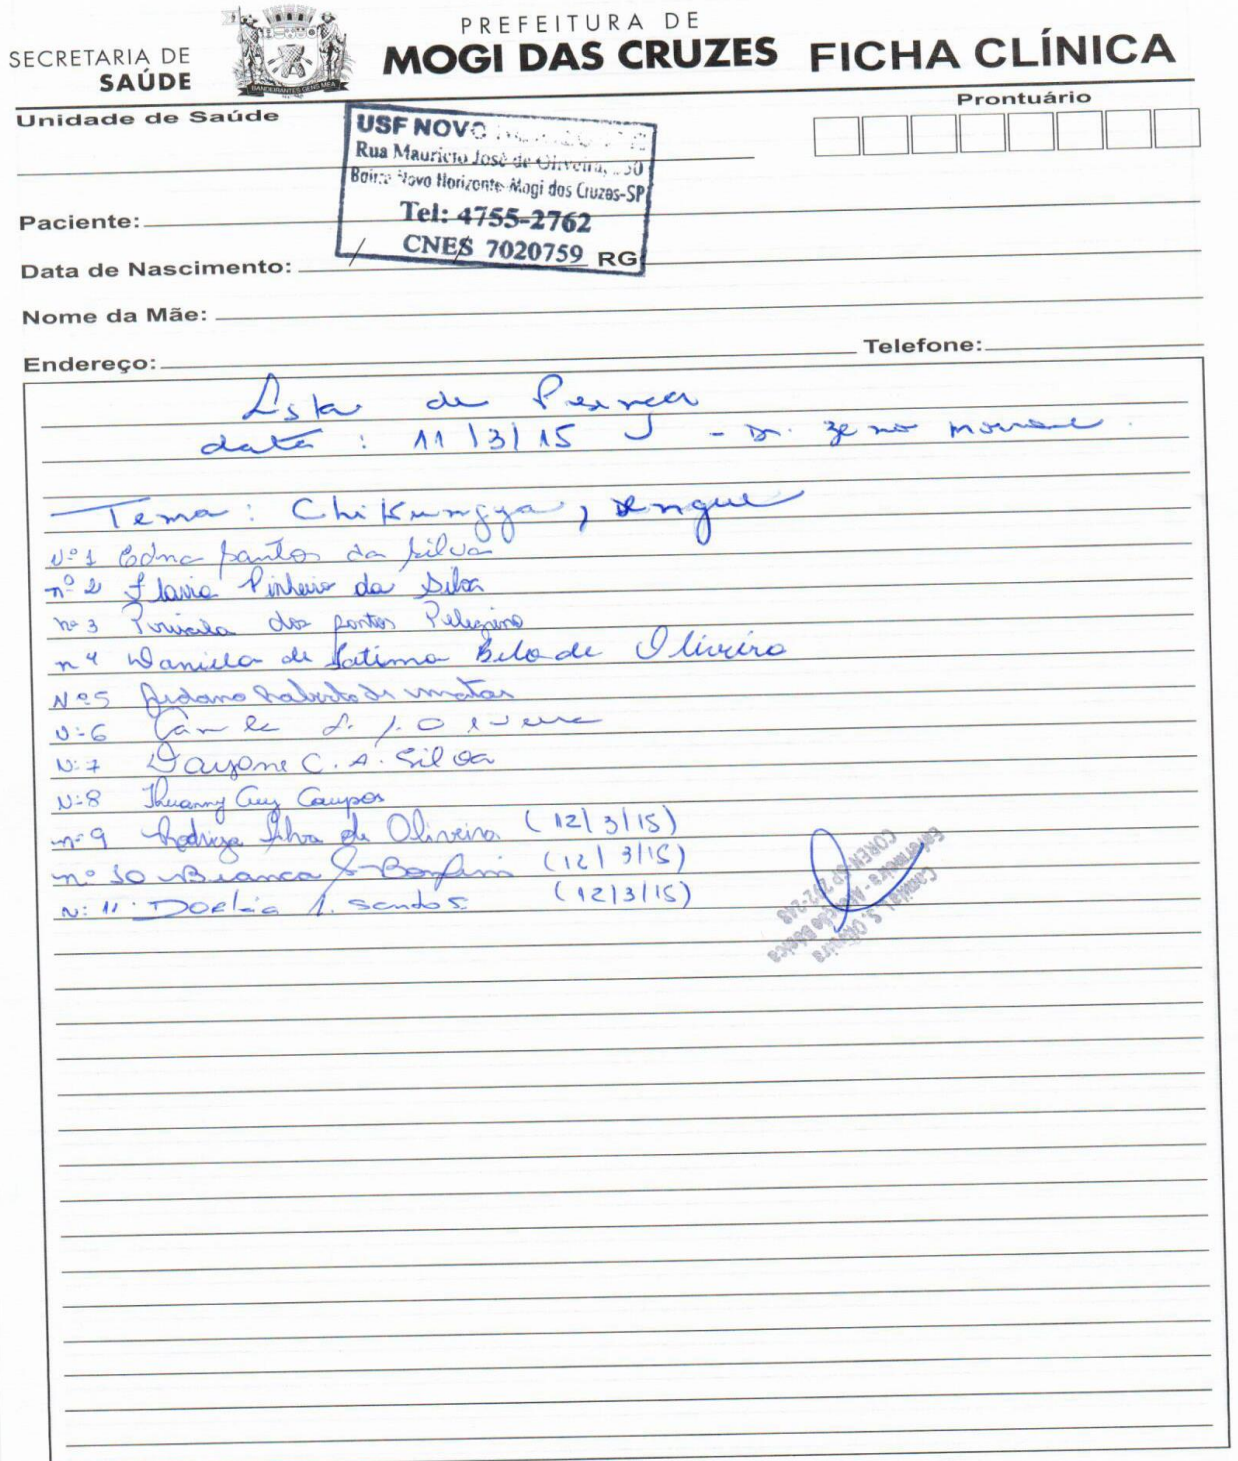 SECRETARIA DE
SAÚDE
BANDEIRANTES GENS MEA
PREFEITURA DE
MOGI DAS CRUZES
FICHA CLÍNICA
Unidade de Saúde
Prontuário
USF NOVO
Rua Mauricio José de Oliveira,
Bairro Novo Horizonte-Mogi das Cruzes-SP
Tel: 4755-2762
CNES 7020759
Paciente:
Data de Nascimento: / / RG
Nome da Mãe:
Endereço: Telefone:
Lista de Presença
data : 11/3/15 - Dr. Zeno
Tema: Chikungya, Dengue
Nº1 Edna Santos da Silva
nº 2 Flavia Pinheiro da Silva
nº 3 Priscila dos Santos Pelegrino
nº 4 Daniela de Fatima Belo de Oliveira
Nº5 Roberto de matos
N:6 Camila
N:7 Dayane C. A. Silva
N:8 Thuanny Campos
nº 9 Silva de Oliveira (12/3/15)
nº 10 Bianca S. Bonfim (12/3/15)
N: 11 Santos (12/3/15)
Camila I. S. Oliveira
Enfermeira - Atenção Básica
COREN-SP 292-248